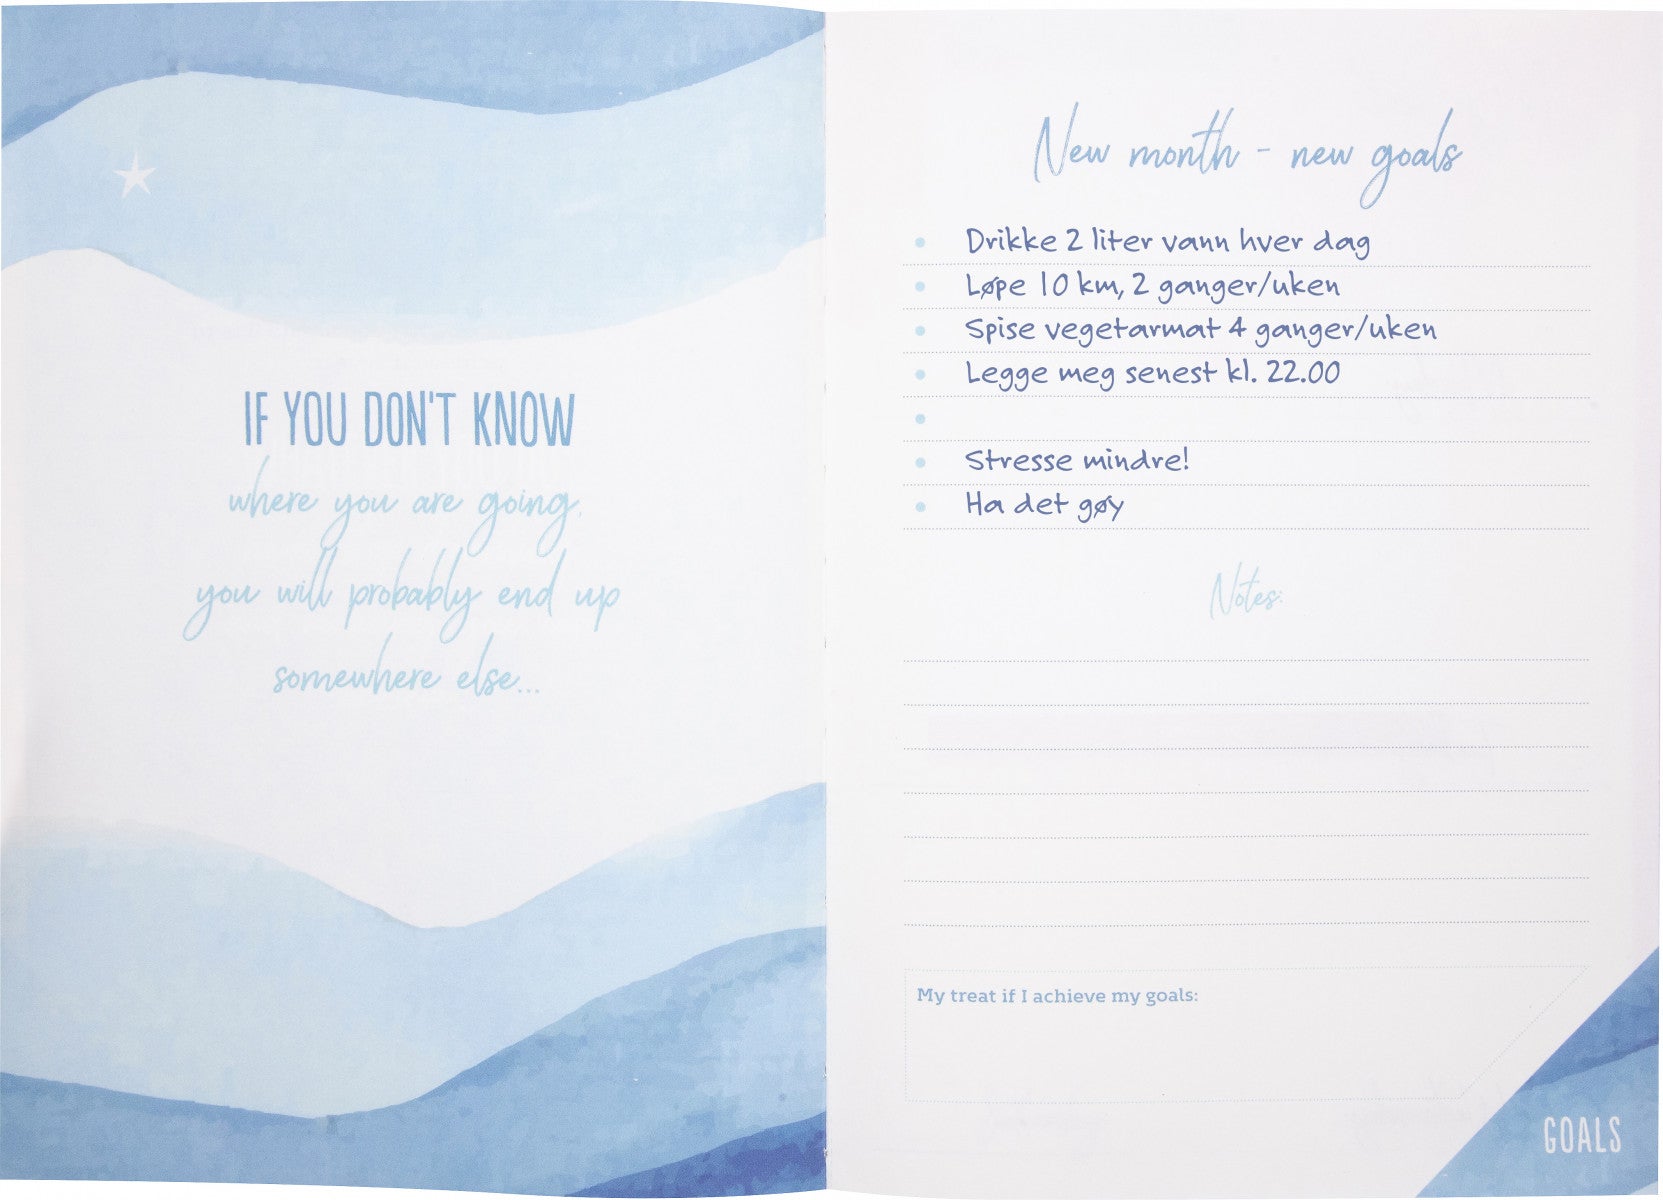 IF YOU DON'T KNOW
where you are going,
you will probably end up
somewhere else...
New month - new goals
Drikke 2 liter vann hver dag
Løpe 10 km, 2 ganger/uken
Spise vegetarmat 4 ganger/uken
Legge meg senest kl. 22.00
Stresse mindre!
Ha det gøy
Notes:
My treat if I achieve my goals:
GOALS